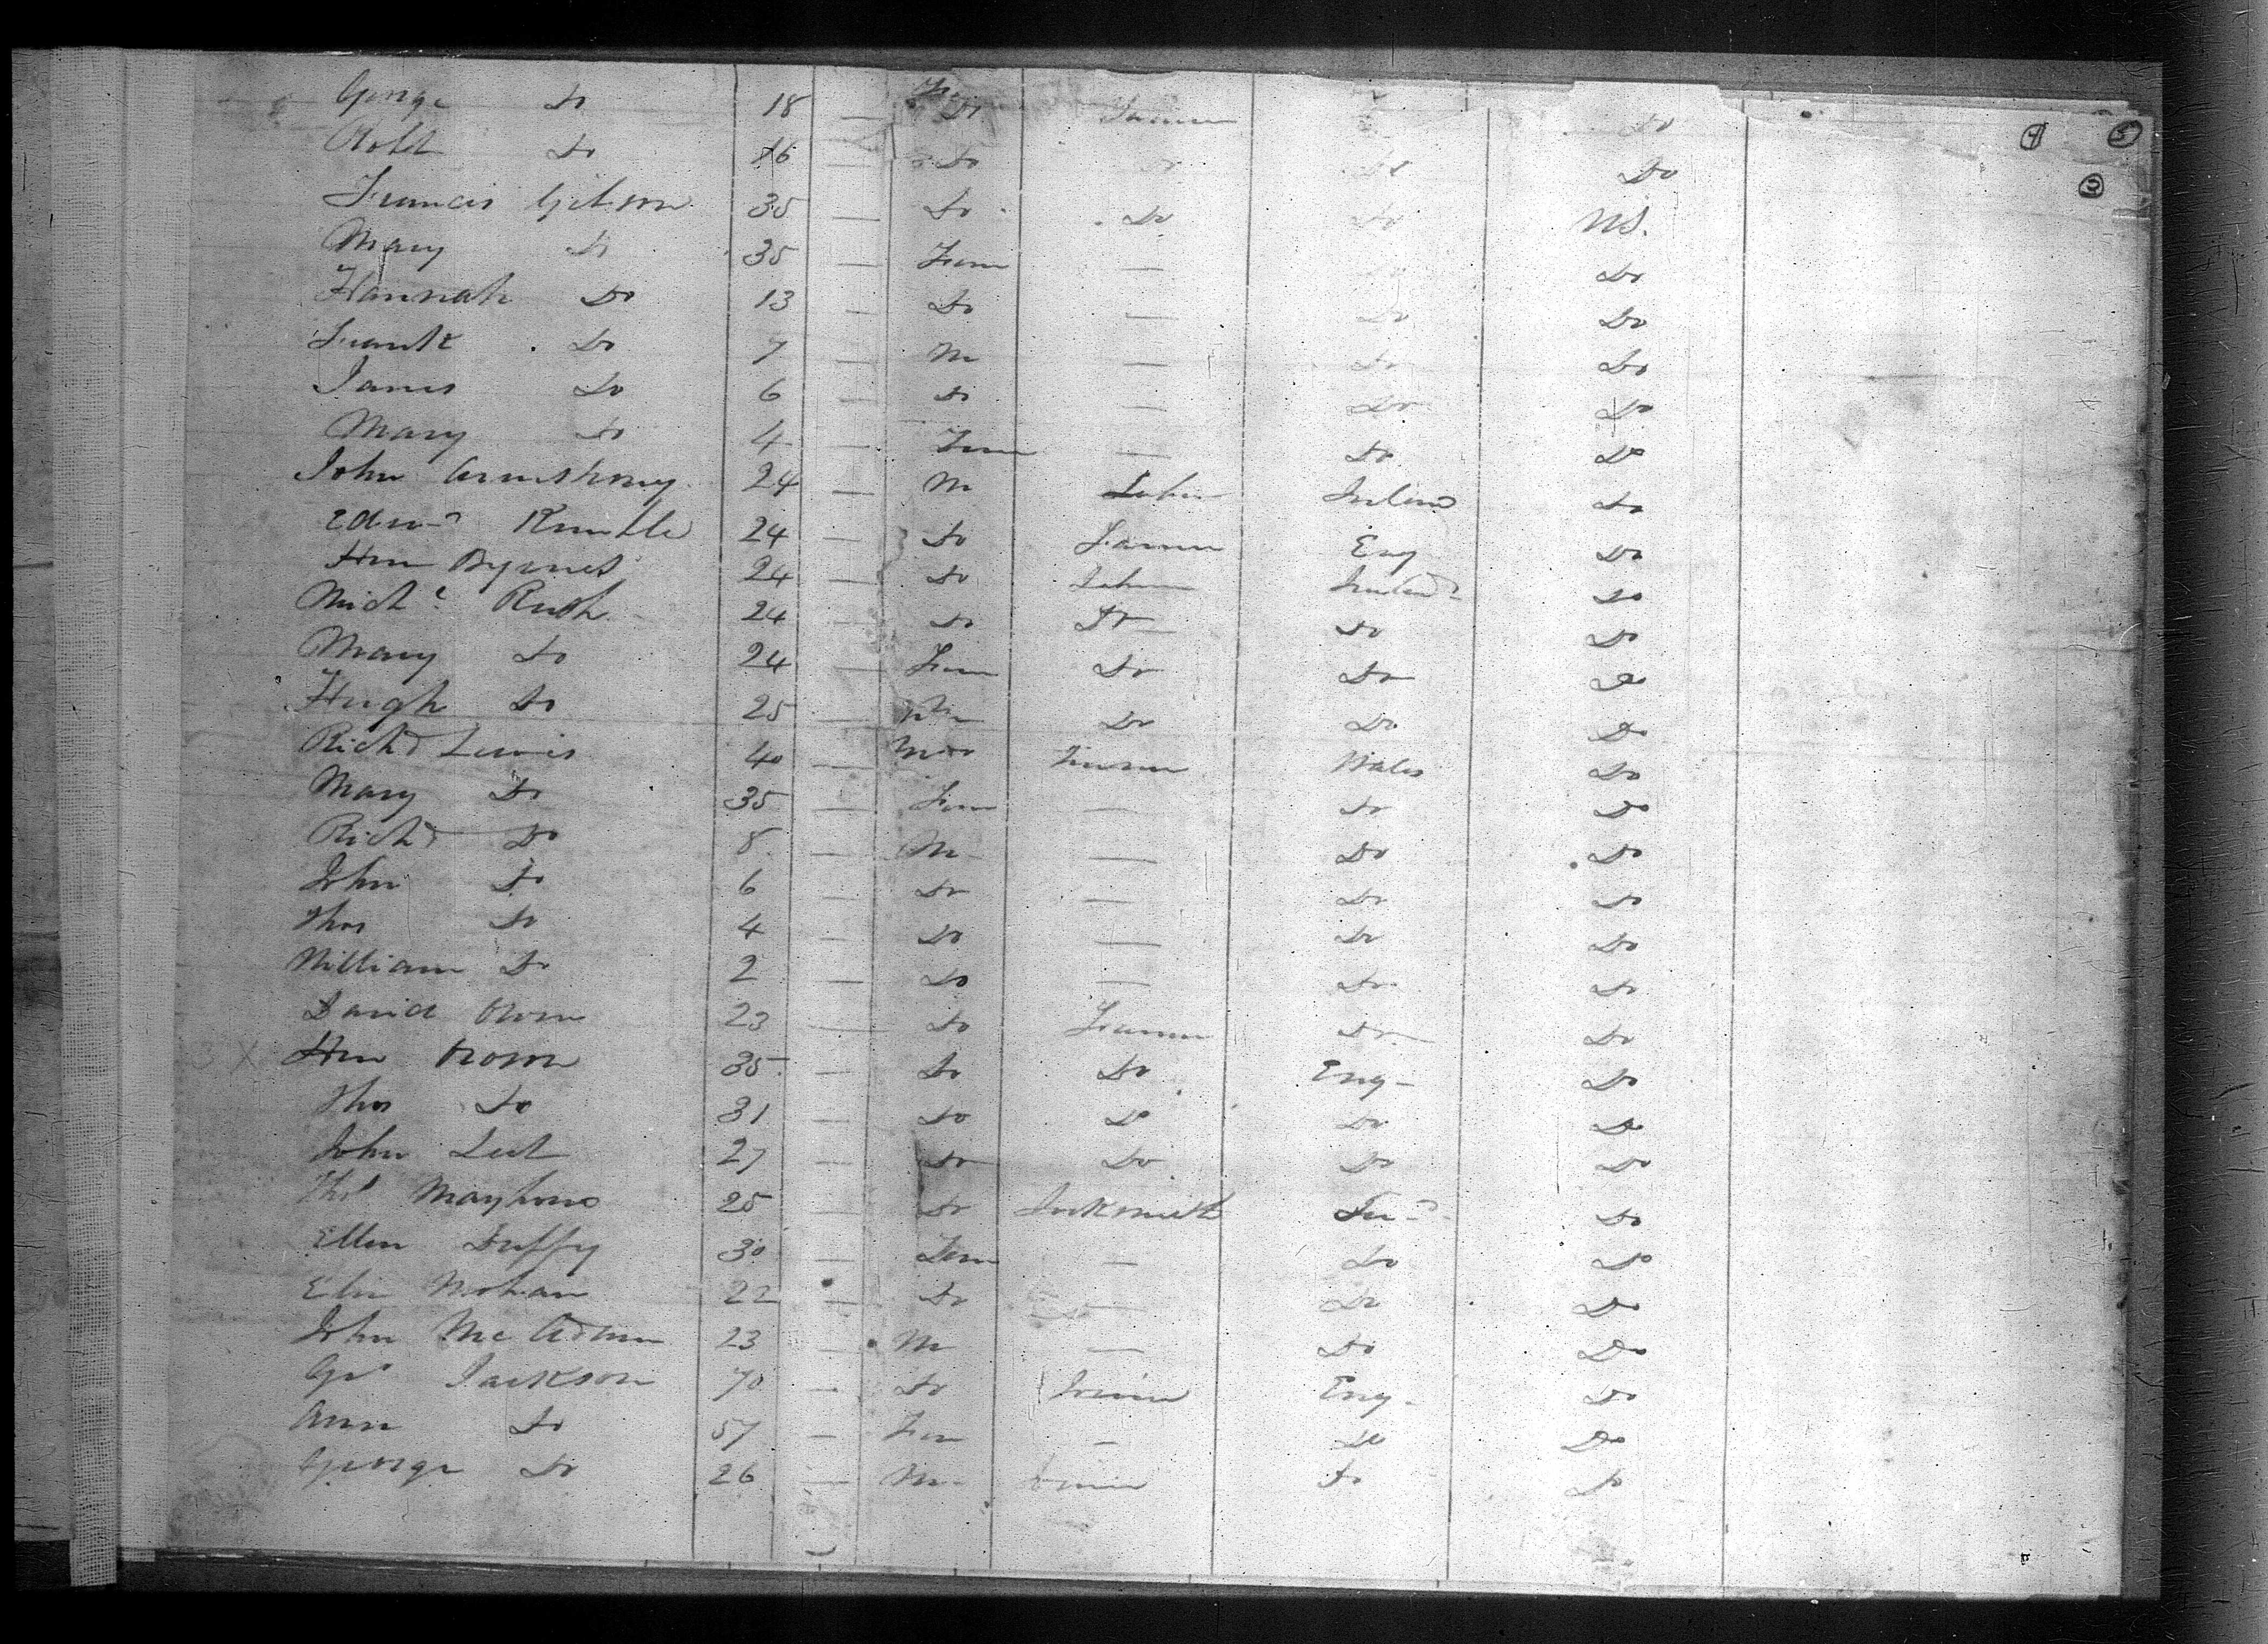 George Do 18 — Do Farmer Do
Robt Do 16 — Do Do Do Do
Francis Gibson 35 — Do Do Do US.
Mary Do 35 — Fem — Do
Hannah Do 13 — Do — Do Do
Frank Do 7 — M — Do Do
James Do 6 — Do — Do Do
Mary Do 4 — Fem — Do Do
John Armstrong 24 — M Labr Ireland Do
Edwd Rumble 24 — Do Farmer Eng Do
Hen Byrnes 24 — Do Labr Ireland Do
Michl Rush 24 — Do Do Do Do
Mary Do 24 — Fem Do Do Do
Hugh Do 25 — M Do Do Do
Richd Lewis 40 — M Farmer Wales Do
Mary Do 35 — Fem — Do Do
Richd Do 8 — M — Do Do
John Do 6 — Do — Do Do
Thos Do 4 — Do — Do Do
William Do 2 — Do — Do Do
David 23 — Do Farmer Do Do
X Hen 35 — Do Do Eng Do
Thos Do 31 — Do Do Do Do
John 27 — Do Do Do Do
Thos 25 — Do Locksmith Do
Ellen Duffy 30 — Fem — Do Do
Eliz Mohan 22 — Do — Do Do
John McAdam 23 M — Do Do
Geo Jackson 70 — Do Eng Do
Ann Do 57 — Fem — Do Do
George Do 26 — M Do Do